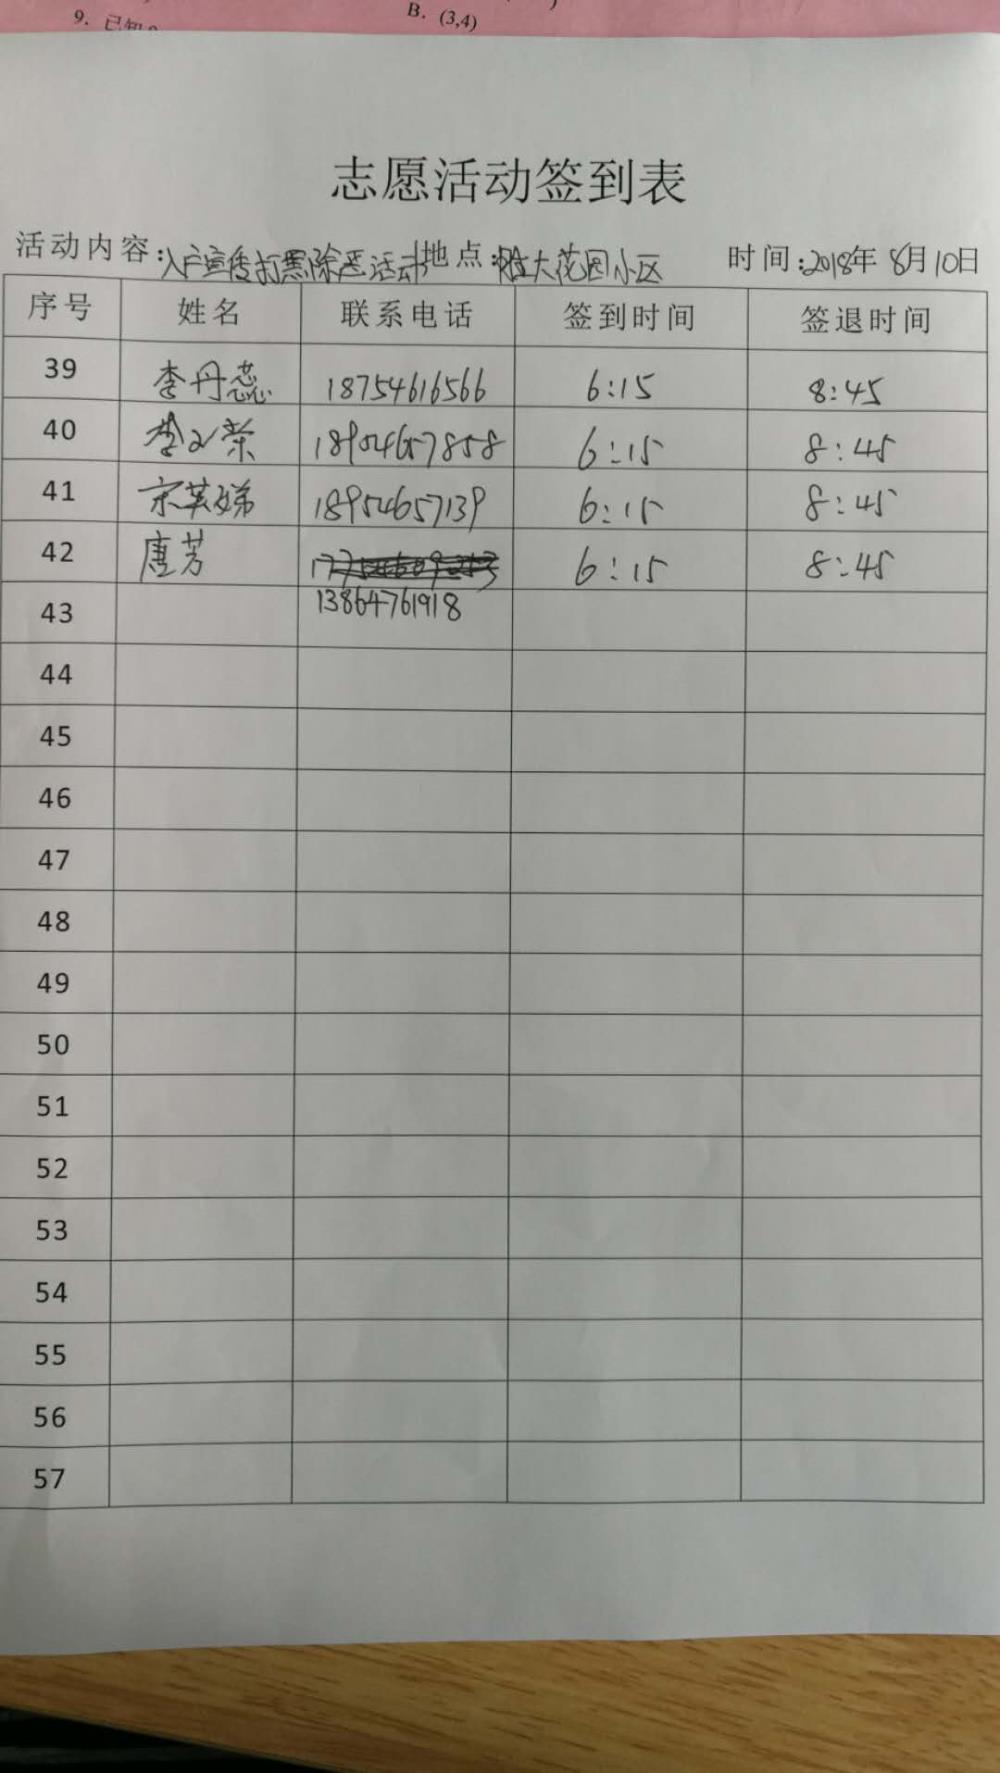 9. 已知
B. (3,4)
志愿活动签到表
活动内容:入户宣传打黑除恶活动 地点:胜大花园小区 时间:2018年8月10日
序号 姓名 联系电话 签到时间 签退时间
39 李丹蕊 18754616566 6:15 8:45
40 李 荣 18904657858 6:15 8:45
41 宋英娣 18954657139 6:15 8:45
42 唐芳 6:15 8:45
43 13864761918
44
45
46
47
48
49
50
51
52
53
54
55
56
57